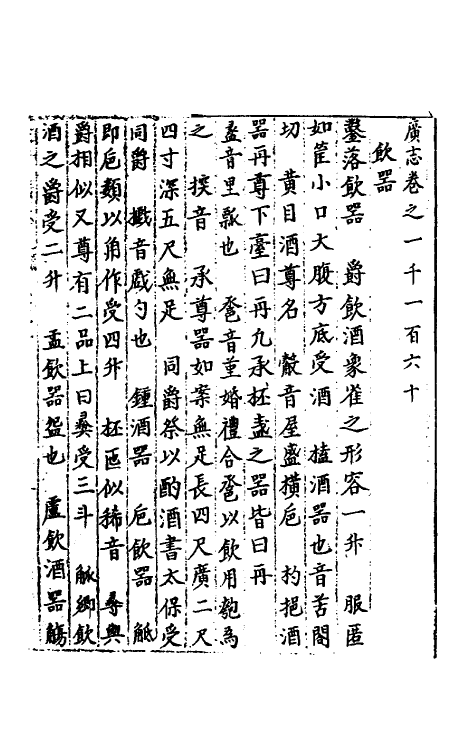 廣志卷之一千一百六十
飲器
鑿落飲器　爵飲酒象雀之形容一升　服匿
如筐小口大腹方底受酒　榼酒器也音苦閤
切　黄目酒尊名　音屋盛橫巵　杓挹酒
器再尊下臺曰再凡承抔盞之器皆曰再
音里瓢也　巹音重婚禮合巹以飲用匏為
之　音　承尊器如案無足長四尺廣二尺
四寸深五尺無足　同爵祭以酌酒書太保受
同爵　音戲勺也　鍾酒器　巵飲器　觝
即巵類以角作受四升　抔匜似稀音　尋與
爵相似又尊有二品上曰彜受三斗　觚鄉飲
酒之爵受二升　盂飲器盌也　盧飲酒器觴